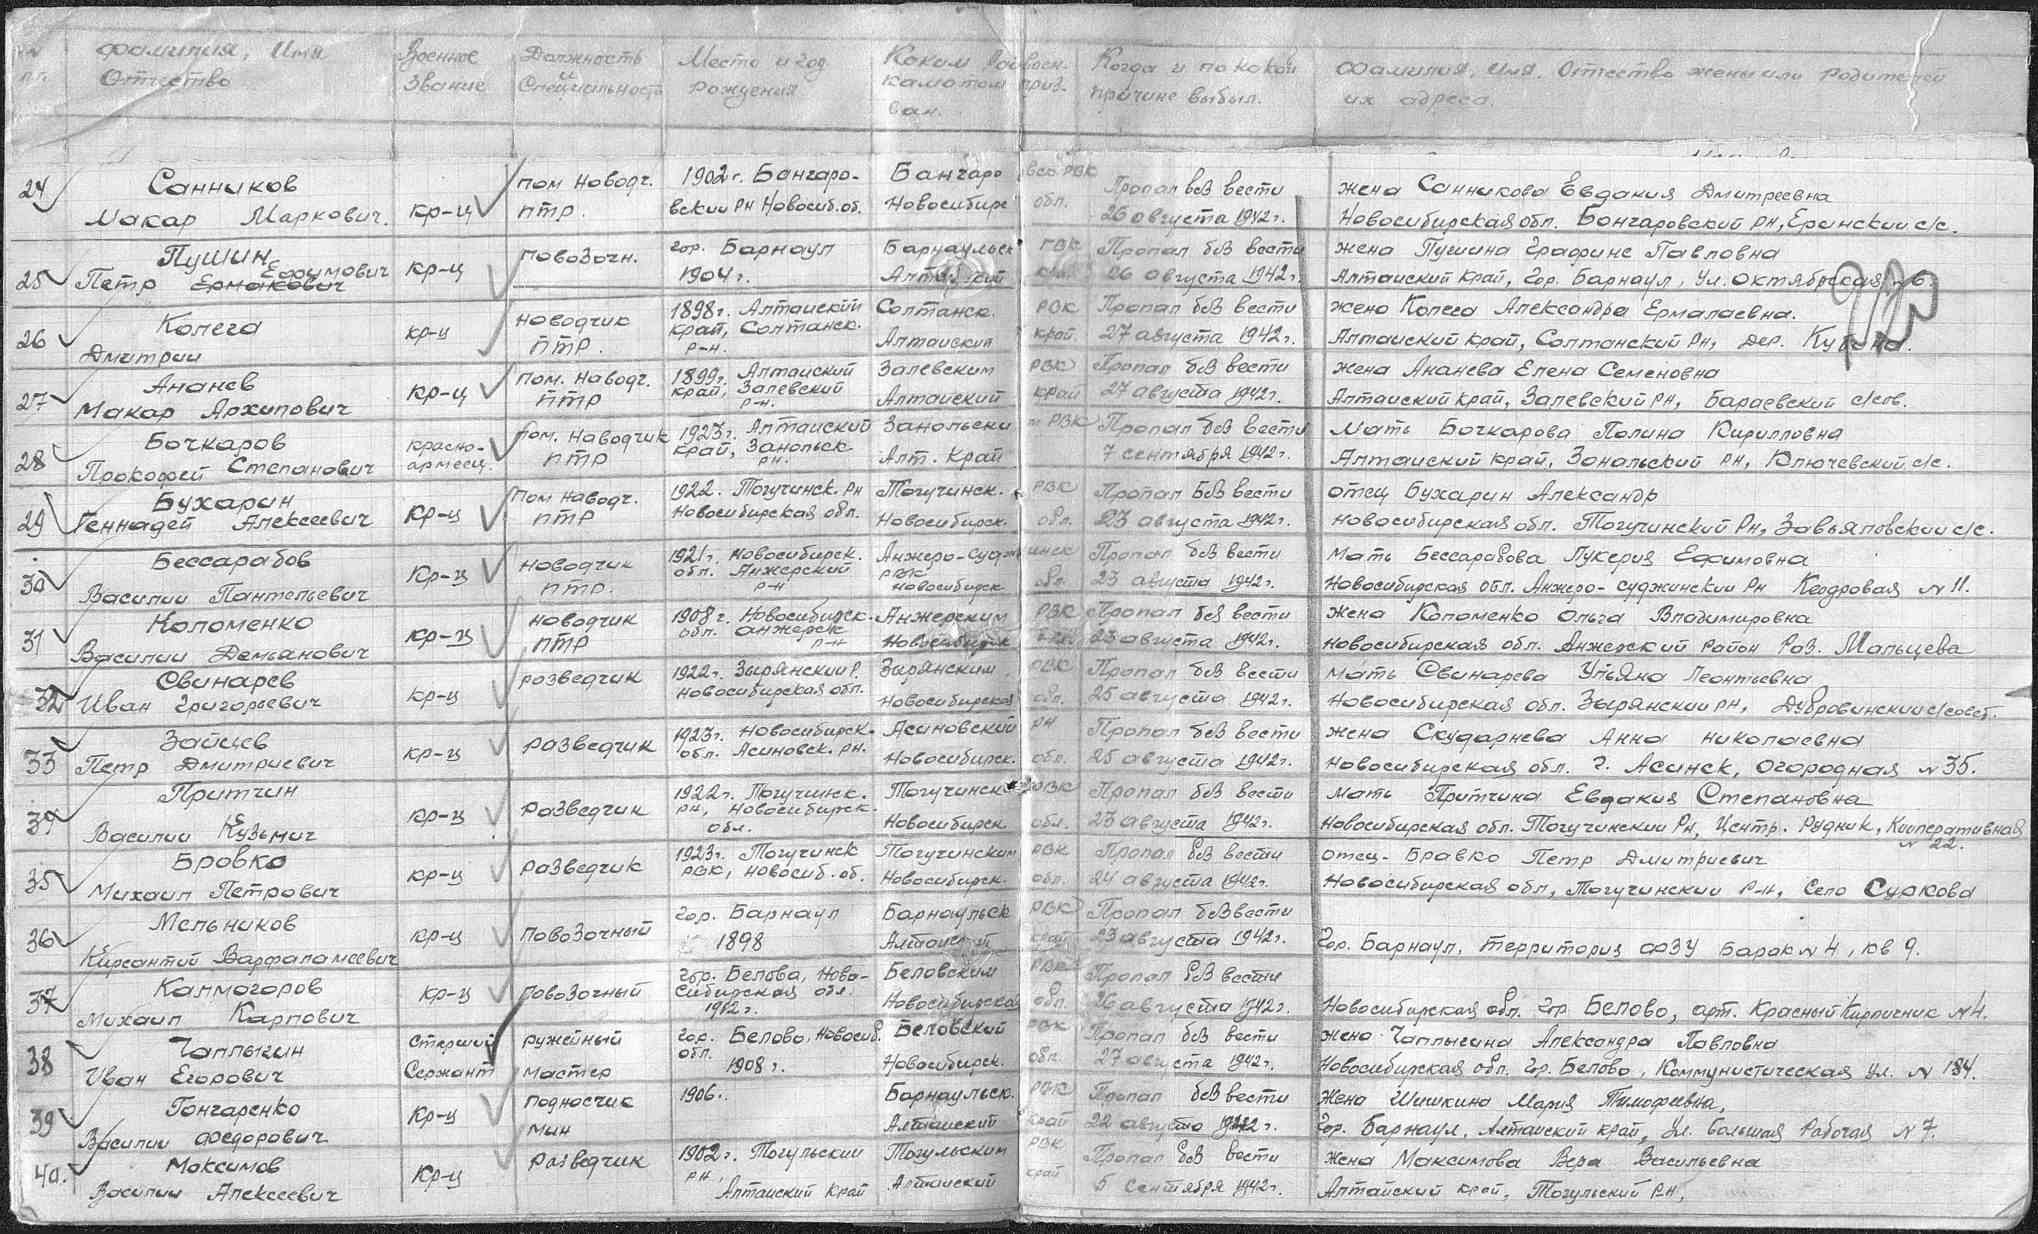 фамилия, Имя Отчество
Военное Звание
Должность и Специальность
Место и год рождения
Каким Райвоенкаматом призван.
Когда и по какой причине выбыл.
Фамилия, имя, Отчество жены или родителей их адреса.
24 Санников Макар Маркович. кр-ц пом наводч. ПТР. 1902г. Бангаровский РН Новосиб.об. Бангаровско РВК Новосибирс обл. Пропал без вести 26 августа 1942г. жена Санникова Евдакия Дмитреевна
Новосибирская обл. Бонгаровский РН, Еринский с/с.
25 Пушин Петр Ермакович Ефимович кр-ц повозочн. гор. Барнаул 1904г. Барнаульск ГВК Алтайский Пропал без вести 26 августа 1942г. жена Пушина Графине Павловна
Алтайский край, гор. Барнаул, ул. Октябрская
26 Колега Дмитрии кр-ц Наводчик ПТР. 1898г. Алтайский край, Солтанск. р-н. Солтанск. РВК Алтайский край. Пропал без вести 27 августа 1942г. жена Колега Александра Ермалаевна.
Алтайский край, Солтанский РН, дер.
27 Ананев Макар Архипович кр-ц пом. наводч. ПТР 1899г. Алтайский край, Залевский р-н. Залевским РВК Алтайский край Пропал без вести 27 августа 1942г. жена Ананева Елена Семеновна
Алтайский край, Залевский РН, Бараевский с/сов.
28 Бочкаров Прокофей Степанович красноармеец. пом. наводчик ПТР 1923г. Алтайский край, Занольск рн. Занольски м РВК Алт. край Пропал без вести 7 сентября 1942г. Мать Бочкарова Полина Кирилловна
Алтайский край, Зональский РН, Ключевский с/с.
29 Бухарин Геннадей Алексеевич кр-ц Пом наводч. ПТР 1922. Тогучинск. РН Новосибирская обл. Тогучинск. РВК Новосибирск. обл. Пропал без вести 23 августа 1942г. отец Бухарин Александр
Новосибирская обл. Тогучинский Рн, Завьяловский с/с.
30 Бессарабов Василии Пантельевич кр-ц Наводчик ПТР. 1921г. Новосибирск. обл. Анжерский р-н Анжеро-Суджинск РВК Новосибирск обл. Пропал без вести 23 августа 1942г. Мать Бессарабова Лукерия Ефимовна
Новосибирская обл. Анжеро-Суджинский РН Кедровая N 11.
31 Коломенко Василии Демьянович кр-ц наводчик ПТР 1908г. Новосибирск. обл. анжерск р-н Анжерским РВК Новосибирск Пропал без вести 23 августа 1942г. жена Коломенко Ольга Владимировна
Новосибирская обл. Анжерский район Раз. Мальцева
32 Свинарев Иван Григорьевич кр-ц розведчик 1922г. Зырянский Р. Новосибирская обл. Зырянским РВК Новосибирская обл. Пропал без вести 25 августа 1942г. мать Свинарева Ульяна Леонтьевна
Новосибирская обл. Зырянский РН, Дубровинский с/совет.
33 Зайцев Петр Дмитриевич кр-ц разведчик 1923г. Новосибирск. обл. Асиновск. рн. Асиновский РН Новосибирск. обл. Пропал без вести 25 августа 1942г. жена Скударнева Анна Николаевна
Новосибирская обл. г. Асинск, Огородная N 35.
34 Притчин Василии Кузьмич кр-ц разведчик 1922г. Тогучинск. рн, Новосибирск. обл. Тогучинск РВК Новосибирск обл. Пропал без вести 23 августа 1942г. мать Притчина Евдакия Степановна
Новосибирская обл. Тогучинский РН, Центр. Рудник, Кооперативная N 22.
35 Бровко Михаил Петрович кр-ц разведчик 1923г. Тогучинск РВК, Новосиб. об. Тогучинским РВК Новосибирск. обл. Пропал без вести 24 августа 1942г. отец-Бравко Петр Дмитриевич
Новосибирская обл, Тогучинский Р-н, село Суркова
36 Мельников Кирсантий Варфаламеевич кр-ц повозочный гор. Барнаул 1898 Барнаульск РВК Алтайский край Пропал без вести 23 августа 1942г.
Гор. Барнаул, территория ФЗУ барак N 4, кв 9.
37 Калмогоров Михаил Карпович кр-ц повозочный гор. Белова, Новосибирская обл. 1912г. Беловским РВК Новосибирская обл. Пропал без вести 26 августа 1942г.
Новосибирская обл. гор Белово, арт. Красный Кирпичник N 4.
38 Чаплыгин Иван Егорович Старший Сержант ружейный мастер гор. Белово, Новосиб. обл. 1908г. Беловский РВК Новосибирск. обл. Пропал без вести 27 августа 1942г. жена Чаплыгина Александра Павловна
Новосибирская обл. гор. Белово, Коммунистическая ул. N 184.
39 Гончаренко Василии Федорович кр-ц подносчик мин 1906г. Барнаульск. РВК Алтайский край Пропал без вести 22 августа 1942г. Жена Шишкина Мария Тимофеевна,
Гор. Барнаул, Алтайский край, ул. большая Рабочая N 7.
40. Максимов Василии Алексеевич кр-ц Разведчик 1902г. Тогульский рн, Алтайский край Тогульским РВК Алтайский край Пропал без вести 5 сентября 1942г. жена Максимова Вера Васильевна
Алтайский край, Тогульский РН,